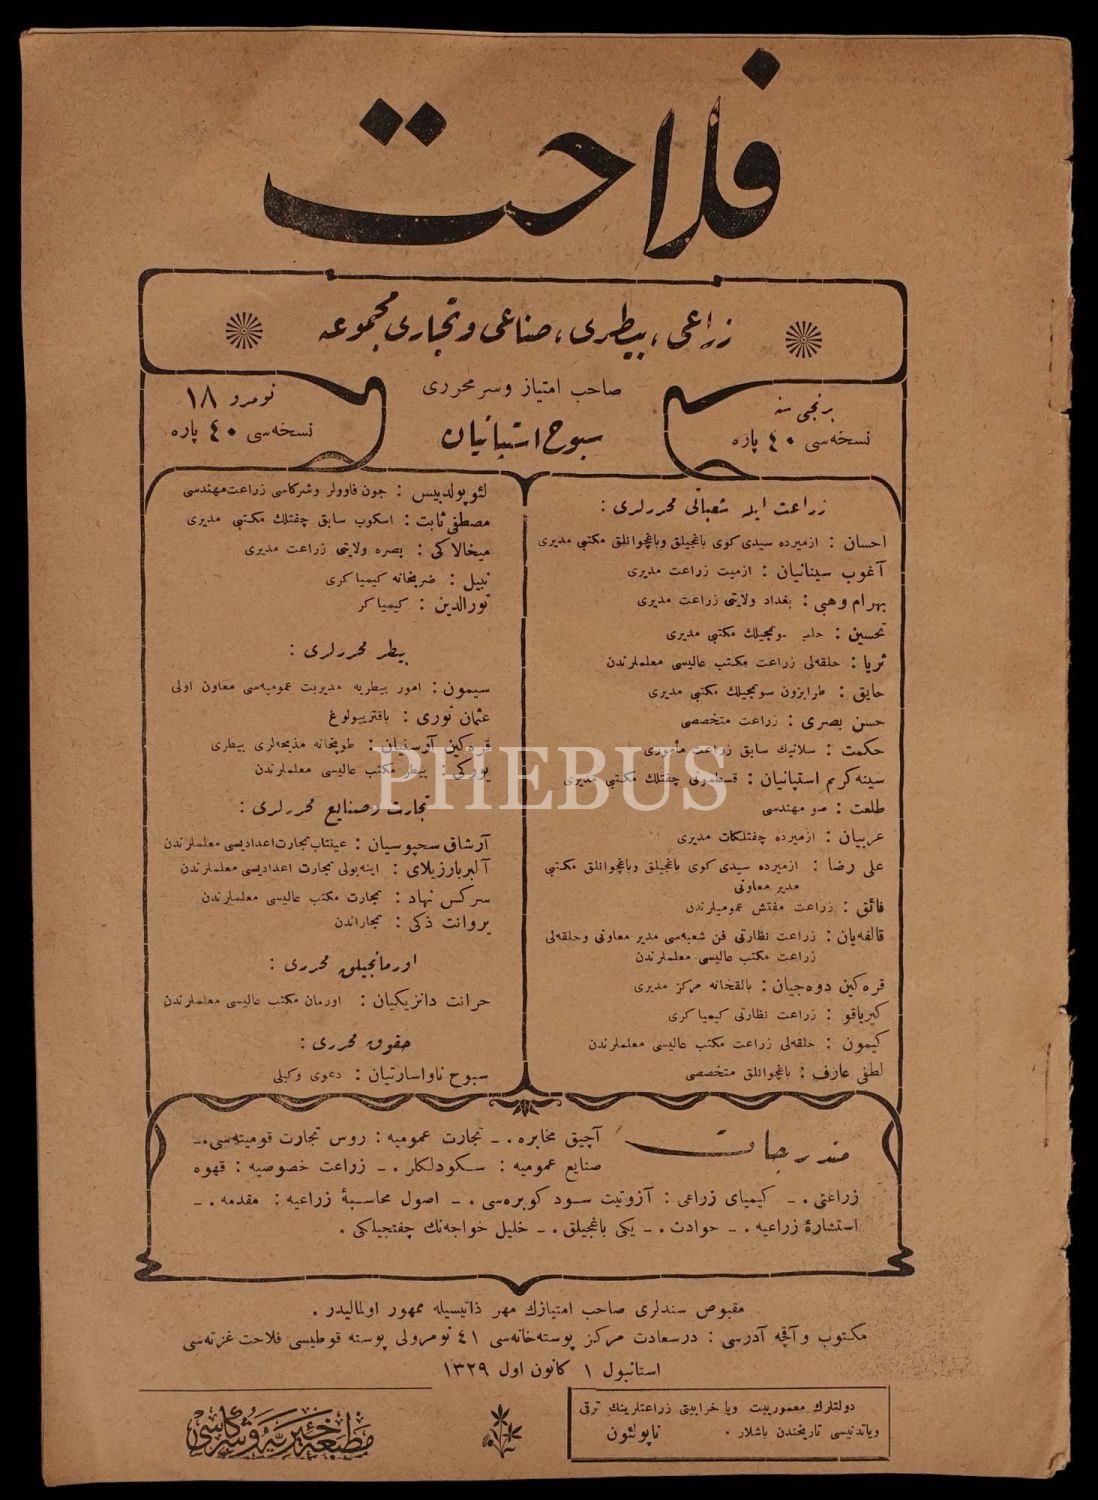 فلاحت
زراعی ، بیطری ، صناعی و تجاری مجموعه
برنجی سنه
نسخه‌سی ٤٠ پاره
صاحب امتیاز و سر محرری
سبوح استپانیان
نومرو ١٨
نسخه‌سی ٤٠ پاره
زراعت ایله شعباتی محررلری :
احسان : ازمیرده سیدی کوی باغجیلق وباغچوانلق مکتبی مدیری
آغوب سینانیان : ازمیت زراعت مدیری
بهرام وهبی : بغداد ولایتی زراعت مدیری
تحسین : حلب مکتبی مدیری
ثریا : حلقه‌لی زراعت مکتب عالیسی معلملرندن
حایق : طرابزون سوتجیلك مکتبی مدیری
حسن بصری : زراعت متخصصی
حکمت : سلانیك سابق زراعت مأموری
سینه‌کریم استپانیان : قسطمونی چفتلك مکتبی مدیری
طلعت : صو مهندسی
عربیان : ازمیرده چفتلکات مدیری
علی رضا : ازمیرده سیدی کوی باغجیلق وباغچوانلق مکتبی
مدیر معاونی
فائق : زراعت مفتش عمومیلرندن
قالفه‌یان : زراعت نظارتی فن شعبه‌سی مدیر معاونی وحلقه‌لی
زراعت مکتب عالیسی معلملرندن
قره‌کین دوه‌جیان : بالقخانه مرکز مدیری
کیریاقو : زراعت نظارتی کیمیاکری
کیمون : حلقه‌لی زراعت مکتب عالیسی معلملرندن
لطفی عارف : باغچوانلق متخصصی
لئوپولدبیس : جون فاوولر وشرکاسی زراعت مهندسی
مصطفی ثابت : اسکوب سابق چفتلك مکتبی مدیری
میخالاکی : بصره ولایتی زراعت مدیری
نبیل : ضربخانه کیمیاکری
نورالدین : کیمیاکر
بیطر محررلری :
سیمون : امور بیطریه مدیریت عمومیه‌سی معاون اولی
عثمان نوری : باقتریولوغ
قره‌کین آرسنیان : طوپخانه مذبحه‌لری بیطری
یورکی : بیطر مکتب عالیسی معلملرندن
تجارت و صنایع محررلری :
آرشاق سحپوسیان : عینتاب تجارت اعدادیسی معلملرندن
آلبر بارزیلای : اینه‌بولی تجارت اعدادیسی معلملرندن
سرکس نهاد : تجارت مکتب عالیسی معلملرندن
یروانت ذکی : تجاراندن
اورمانجیلق محرری :
حرانت دانزیکیان : اورمان مکتب عالیسی معلملرندن
حقوق محرری :
سبوح ناواسارتیان : دعوی وکیلی
مندرجات
آچیق مخابره .ـ تجارت عمومیه : روس تجارت قومیته‌سی .ـ
صنایع عمومیه : سکودلکلر .ـ زراعت خصوصیه : قهوه
زراعتی .ـ کیمیای زراعی : آزوتیت سود کوبره‌سی .ـ اصول محاسبۀ زراعیه : مقدمه .ـ
استشارۀ زراعیه .ـ حوادث .ـ یکی باغجیلق .ـ خلیل خواجه‌نك چفتجیلکی .
مقبوض سندلری صاحب امتیازك مهر ذاتیسیله ممهور اولمالیدر .
مکتوب و آقچه آدرسی : درسعادت مرکز پوسته‌خانه‌سی ٤١ نومرولی پوسته قوطیسی فلاحت غزته‌سی
استانبول ١ کانون اول ١٣٢٩
دولتلرك معموریت ویا خرابیتی زراعتلرینك ترقی
ویاتدنیسی تاریخندن باشلار .
ناپولئون
مطبعه خیریه و شرکاسی
PHEBUS